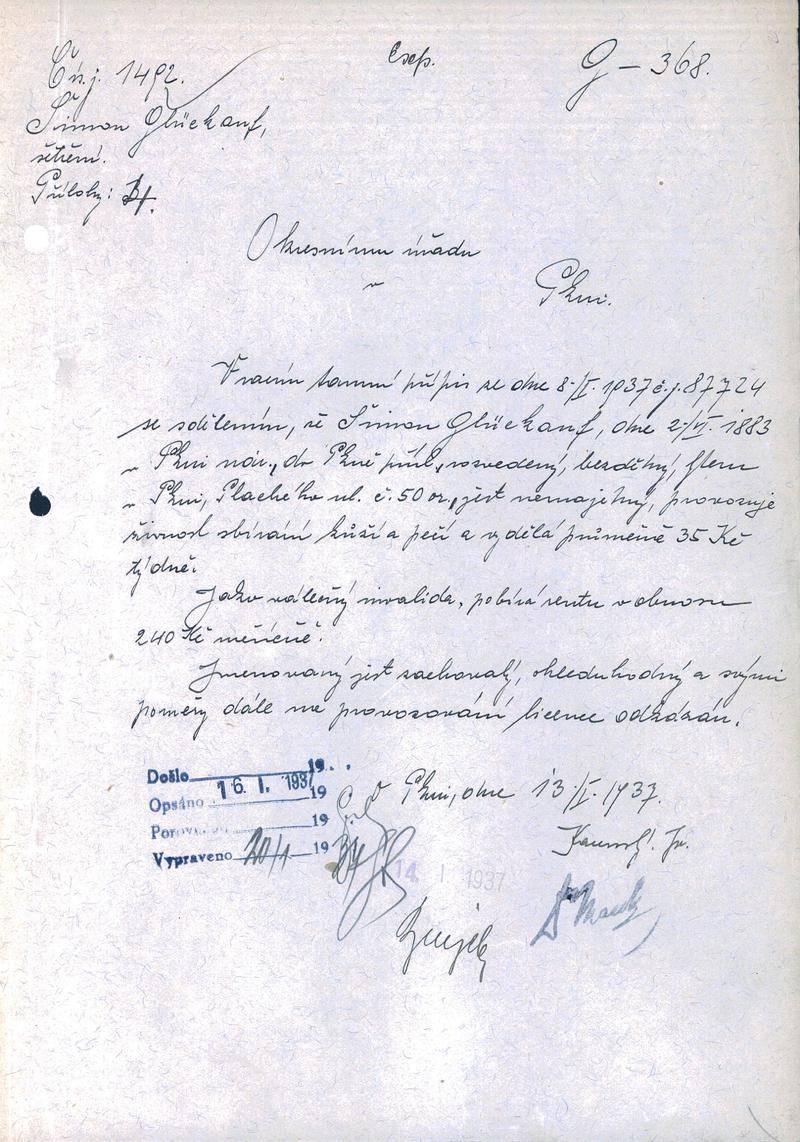 Čís.j. 1492.
Exp.
G – 368.
Šimon Glückauf,
šetření.
Přílohy:
Okresnímu úřadu
v
Plzni.
Vracím tamní přípis ze dne 8./I. 1937 č.j. 87724
se sdělením, že Šimon Glückauf, dne 2./VI. 1883
v Plzni nar., do Plzně přísl., rozvedený, bezdětný, bytem
v Plzni, Plachého ul. č. 50 or., jest nemajetný, provozuje
živnost sbírání kůží a peří a vydělá průměrně 35 Kč
týdně.
Jako válečný invalida, pobírá rentu v obnosu
240 Kč měsíčně.
Jmenovaný jest zachovalý, ohleduhodný a svými
poměry dále na provozování licence odkázán.
Došlo 16. I. 1937 19
Opsáno 19
Porovnáno 19
Vypraveno 20/1 19 37
V Plzni, dne 13/I. 1937.
14. I 1937